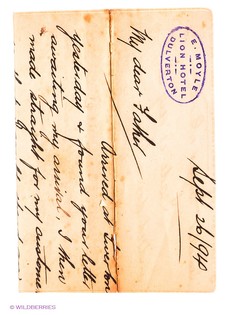 E. MOYLE
LION HOTEL
DULVERTON
Sept 26/940
My dear Father
Arrived at Tiverton
yesterday & found your letter
awaiting my arrival. I then
made straight for my customer
© WILDBERRIES